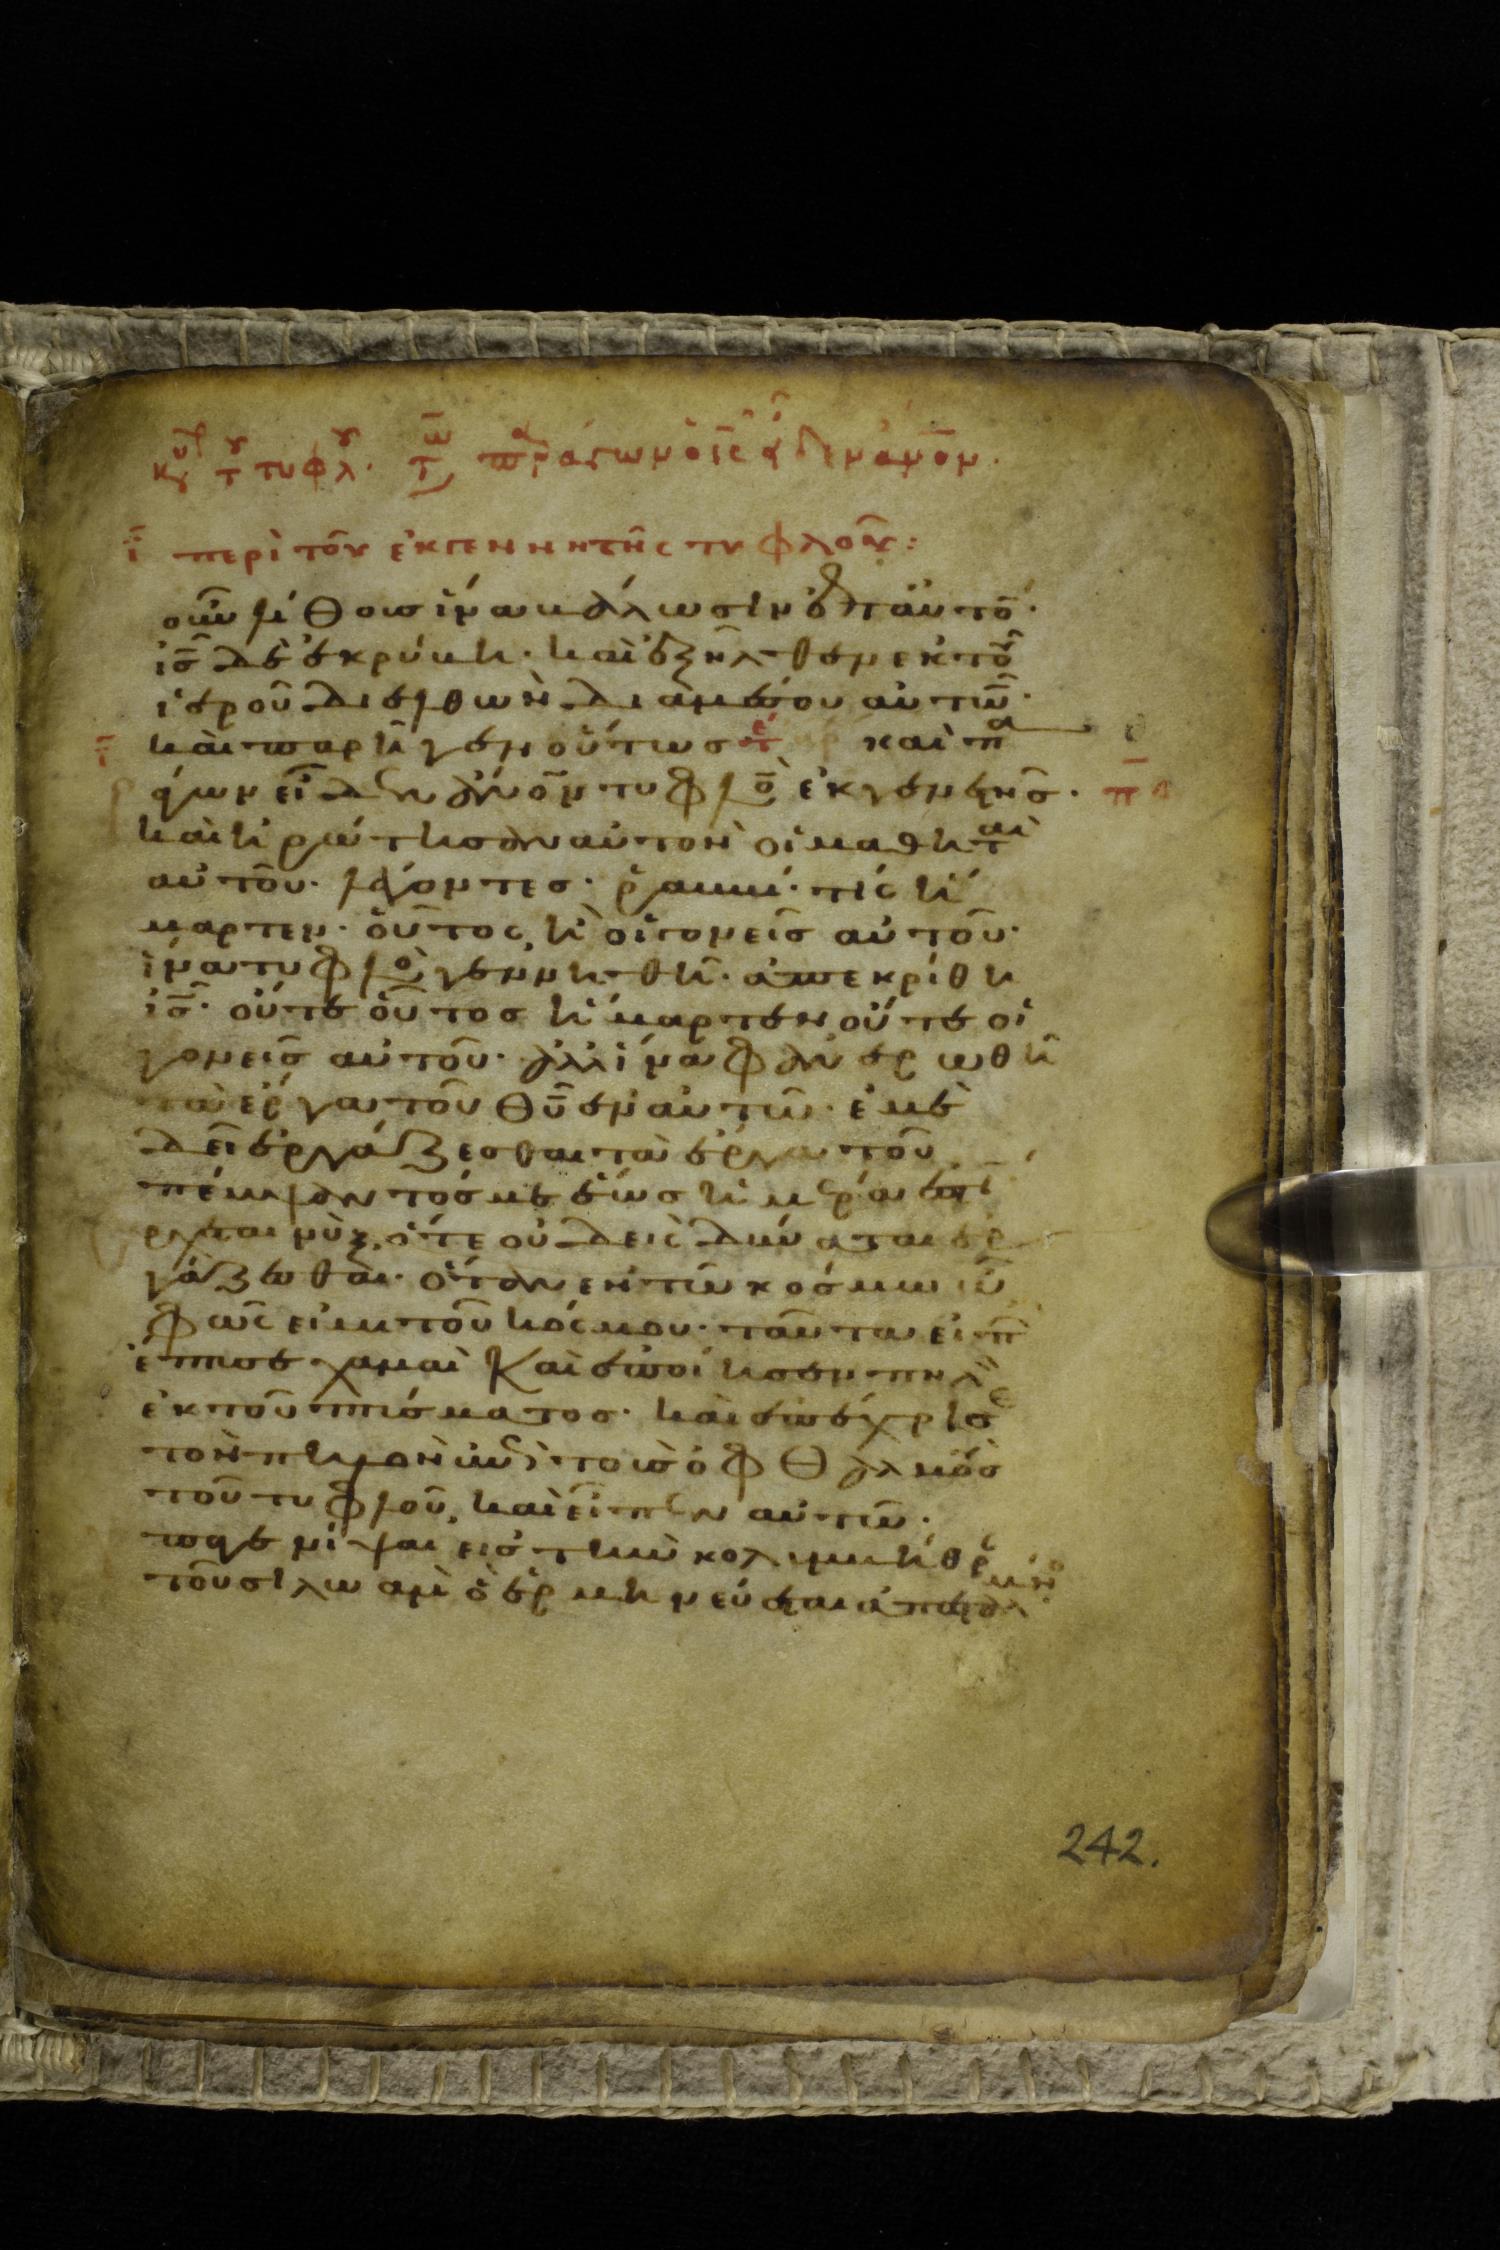 κυ τ τυφλ. τω παράγων ὁ ις εἶδεν ἄνον.
ι περὶ τοῦ ἐκ γεννητῆς τυφλοῦ:
οὖν λίθους ἵνα βάλωσιν ἐπ αὐτό.
ις δὲ ἐκρύβη. καὶ ἐξῆλθεν ἐκ τοῦ
ἱεροῦ διελθὼν διὰ μέσου αὐτῶ.
καὶ παρῆγεν οὕτωσ τε καὶ πα
ράγων εἶδεν ἄνον τυφλὸ ἐκ γενετῆσ.
καὶ ἠρώτησαν αὐτὸν οἱ μαθηταὶ
αὐτοῦ. λέγοντες. ῥαββί. τίς ἥ
μαρτεν. οὗτος, ἢ οἱ γονεῖσ αὐτοῦ.
ἵνα τυφλὸ γεννηθῆ. ἀπεκρίθη
ις. οὔτε οὗτοσ ἥμαρτεν οὔτε οἱ
γονεῖσ αὐτοῦ. ἀλλ ἵνα φανερωθῆ
τὰ ἔργα τοῦ θυ ἐν αὐτῶ. ἐμὲ
δεῖ ἐργάζεσθαι τὰ ἔργα τοῦ
πέμψαντόσ με ἕωσ ἡμέρα ἐστί
ἔρχεται νὺξ, ὅτε οὐδεὶς δύναται ἐρ
γάζεσθαι. ὅταν ἐν τῶ κόσμω ὦ
φῶς εἰμι τοῦ κόσμου. ταῦτα εἰπ
ἔπτυσε χαμαὶ καὶ ἐποίησεν πηλὸ
ἐκ τοῦ πτύσματοσ. καὶ ἐπέχρισε
τὸν πηλὸν ἐπὶ τοὺσ ὀφθαλμοὺσ
τοῦ τυφλοῦ, καὶ εἶπεν αὐτῶ.
ὕπαγε νίψαι εἰσ τὴν κολυμβήθρ
τοῦ σιλωὰμ ὃ ἑρμηνεύεται ἀπεσταλμένο
242.